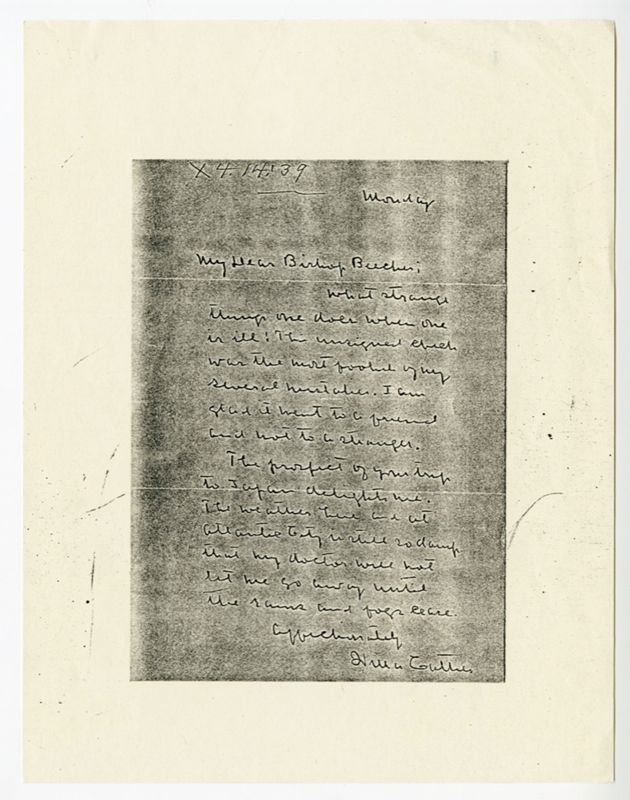 X 4.14.'39
Monday
My dear Bishop Beecher;
What strange
things one does when one
is ill! The unsigned check
was the most foolish of my
several mistakes. I am
glad it went to a friend
and not to a stranger.
The prospect of your trip
to Japan delights me.
The weather here and at
Atlantic City is still so damp
that my doctor will not
let me go away until
the rains and fogs cease.
Affectionately
Willa Cather